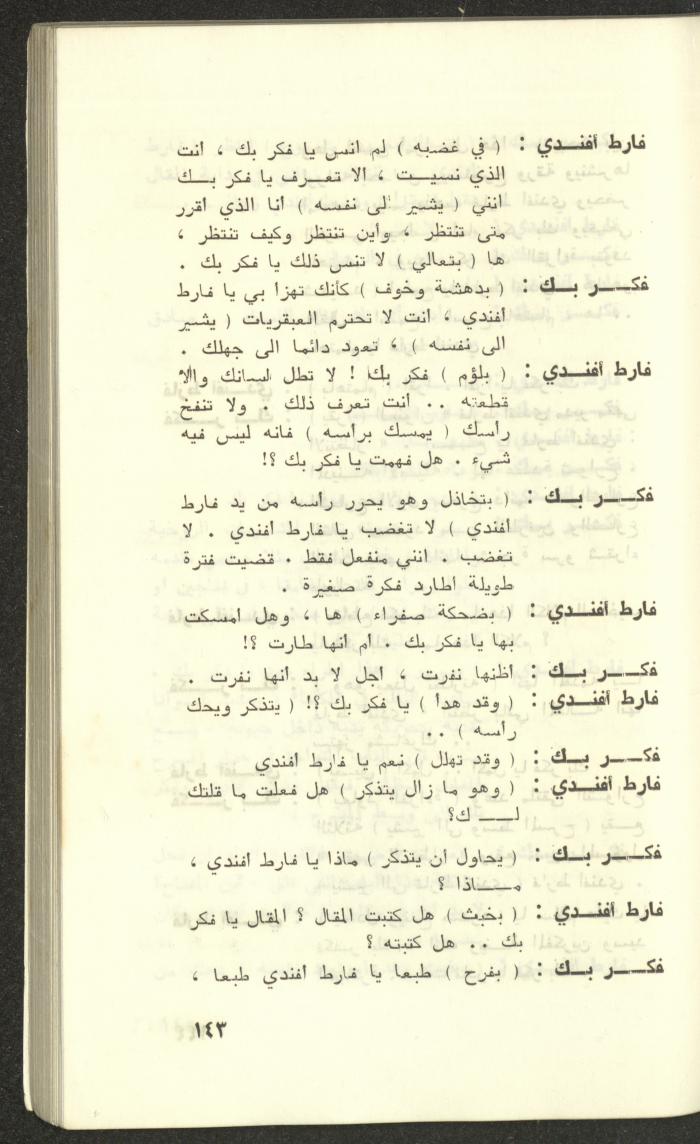 فارط أفنـــدي : ( في غضبه ) لم انس يا فكر بك ، انت
الذي نسيـــت ، الا تعـــرف يا فكر بـــك
انني ( يشير الى نفسه ) أنا الذي اقرر
متى تنتظر ، واين تنتظر وكيف تنتظر ،
ها ( بتعالي ) لا تنس ذلك يا فكر بك .
فكـــــر بــك : ( بدهشة وخوف ) كأنك تهزأ بي يا فارط
أفندي ، أنت لا تحترم العبقريات ( يشير
الى نفسه ) ، تعود دائما الى جهلك .
فارط أفنـــدي : ( بلؤم ) فكر بك ! لا تطل لسانك والا
قطعته .. أنت تعرف ذلك . ولا تنفخ
رأسك ( يمسك برأسه ) فانه ليس فيه
شيء . هل فهمت يا فكر بك ؟!
فكـــــر بــك : ( بتخاذل وهو يحرر رأسه من يد فارط
أفندي ) لا تغضب يا فارط أفندي . لا
تغضب . انني منفعل فقط . قضيت فترة
طويلة اطارد فكرة صغيرة .
فارط أفنـــدي : ( بضحكة صفراء ) ها ، وهل امسكت
بها يا فكر بك . أم أنها طارت ؟!
فكـــــر بــك : اظنها نفرت ، اجل لا بد انها نفرت .
فارط أفنـــدي : ( وقد هدأ ) يا فكر بك ؟! ( يتذكر ويحك
رأسه ) ..
فكـــــر بــك : ( وقد تهلل ) نعم يا فارط افندي
فارط أفنـــدي : ( وهو ما زال يتذكر ) هل فعلت ما قلتك
لـــــ ك؟
فكـــــر بــك : ( يحاول ان يتذكر ) ماذا يا فارط أفندي ،
مـــاذا ؟
فارط أفنـــدي : ( بخبث ) هل كتبت المقال ؟ المقال يا فكر
بك .. هل كتبته ؟
فكـــــر بــك : ( بفرح ) طبعا يا فارط أفندي طبعا ،
١٤٣